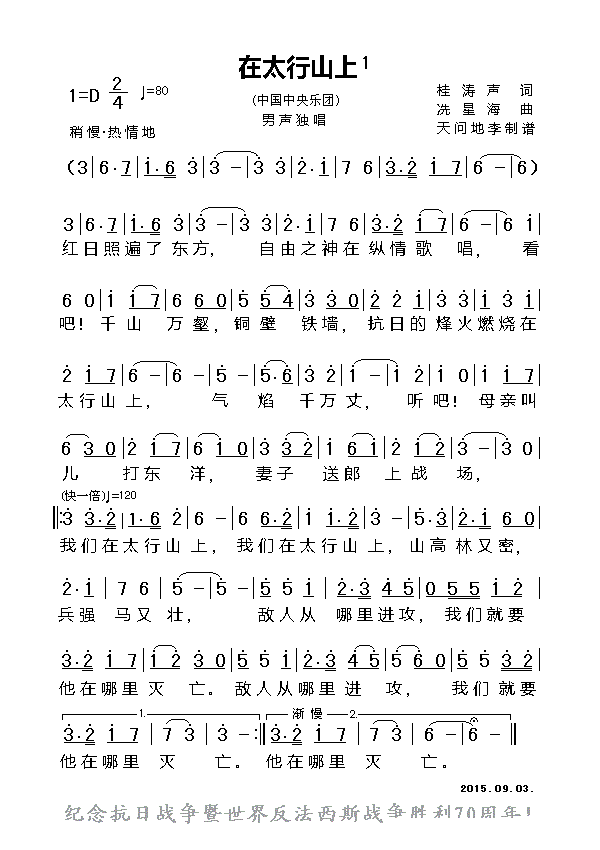 在太行山上1
1=D 2/4 ♩=80
(中国中央乐团)
男声独唱
稍慢·热情地
桂涛声 词
冼星海 曲
天问地李制谱
(3|6·7|1·6 3|3 –|3 3|2·1|7 6|3·2 1 7|6 –|6 –)
3|6·7|1·6 3|3 –|3 3|2·1|7 6|3·2 1 7|6 –|6 1|
红日照遍了东方, 自由之神在纵情歌 唱, 看
6 0|1 1 7|6 6 0|5 5 4|3 3 0|2 2 1|3 3|1 3 1|
吧!千山 万壑,铜壁 铁墙,抗日的烽火燃烧在
2 1 7|6 –|6 –|5 –|5·6|3 2|1 –|1 2|1 0|1 1 1|
太行山上, 气 焰 千万丈, 听吧!母亲叫
6 3 0|2 1 7|6 1 0|3 3 2|6 1|1 2|3 –|3 0|
儿 打东 洋, 妻子 送郎 上战场,
(快一倍)♩=120
3 3·2|1·6 2|6 –|6 6·2|2 1|3 –|5·3|2·1 6 0|
我们在太行山上,我们在太行山上,山高林又密,
2·1|7 6|5 –|5 –|5 5 1|2·3 4 5|0 5 5 1|1 2|
兵强 马又 壮, 敌人从 哪里进攻,我们就要
3·2 1 7|1 2|3 0|5 5 1|3·2 3|4 5|5 6 0|5 5 3 2|
他在哪里灭 亡。敌人从哪里进 攻, 我们就要
1. 渐慢 2.
3·2 1 7|7 3|3 –:|3·2 1 7|7 3|6 –|6 –|
他在哪里灭 亡。他在哪里灭 亡。
2015.09.03.
纪念抗日战争暨世界反法西斯战争胜利70周年!